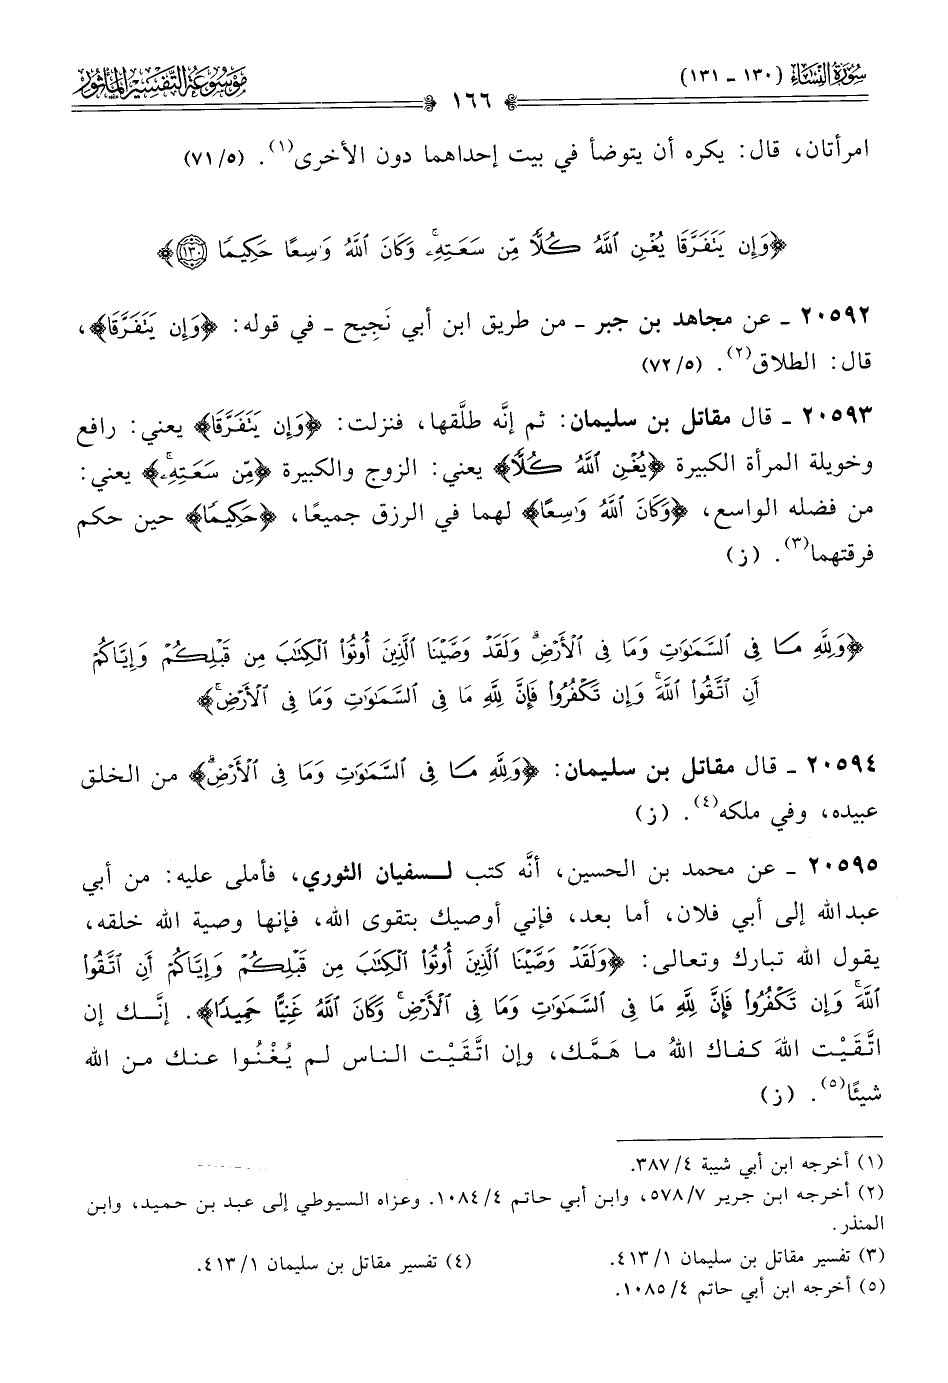 سُورَةُ النِّسَاءِ (١٣٠ - ١٣١)
١٦٦
مَوْسُوعَةُ التَّفْسِيرِ المَأْثُورِ
امرأتان، قال: يكره أن يتوضأ في بيت إحداهما دون الأخرى(١). (٧١/٥)
﴿وَإِن يَتَفَرَّقَا يُغْنِ ٱللَّهُ كُلًّا مِّن سَعَتِهِۦۚ وَكَانَ ٱللَّهُ وَٰسِعًا حَكِيمًا ١٣٠﴾
٢٠٥٩٢ ـ عن مجاهد بن جبر ـ من طريق ابن أبي نَجِيح ـ في قوله: ﴿وَإِن يَتَفَرَّقَا﴾،
قال: الطلاق(٢). (٧٢/٥)
٢٠٥٩٣ ـ قال مقاتل بن سليمان: ثم إنَّه طلَّقها، فنزلت: ﴿وَإِن يَتَفَرَّقَا﴾ يعني: رافع
وخويلة المرأة الكبيرة ﴿يُغْنِ ٱللَّهُ كُلًّا﴾ يعني: الزوج والكبيرة ﴿مِّن سَعَتِهِۦۚ﴾ يعني:
من فضله الواسع، ﴿وَكَانَ ٱللَّهُ وَٰسِعًا﴾ لهما في الرزق جميعًا، ﴿حَكِيمًا﴾ حين حكم
فرقتهما(٣). (ز)
﴿وَلِلَّهِ مَا فِى ٱلسَّمَٰوَٰتِ وَمَا فِى ٱلْأَرْضِۗ وَلَقَدْ وَصَّيْنَا ٱلَّذِينَ أُوتُوا۟ ٱلْكِتَٰبَ مِن قَبْلِكُمْ وَإِيَّاكُمْ
أَنِ ٱتَّقُوا۟ ٱللَّهَۚ وَإِن تَكْفُرُوا۟ فَإِنَّ لِلَّهِ مَا فِى ٱلسَّمَٰوَٰتِ وَمَا فِى ٱلْأَرْضِۚ﴾
٢٠٥٩٤ ـ قال مقاتل بن سليمان: ﴿وَلِلَّهِ مَا فِى ٱلسَّمَٰوَٰتِ وَمَا فِى ٱلْأَرْضِۗ﴾ من الخلق
عبيده، وفي ملكه(٤). (ز)
٢٠٥٩٥ ـ عن محمد بن الحسين، أنَّه كتب لـسفيان الثوري، فأملى عليه: من أبي
عبدالله إلى أبي فلان، أما بعد، فإني أوصيك بتقوى الله، فإنها وصية الله خلقه،
يقول الله تبارك وتعالى: ﴿وَلَقَدْ وَصَّيْنَا ٱلَّذِينَ أُوتُوا۟ ٱلْكِتَٰبَ مِن قَبْلِكُمْ وَإِيَّاكُمْ أَنِ ٱتَّقُوا۟
ٱللَّهَۚ وَإِن تَكْفُرُوا۟ فَإِنَّ لِلَّهِ مَا فِى ٱلسَّمَٰوَٰتِ وَمَا فِى ٱلْأَرْضِۚ وَكَانَ ٱللَّهُ غَنِيًّا حَمِيدًا﴾. إنَّـك إن
اتَّقَيْت اللهَ كفاك اللهُ ما هَمَّك، وإن اتَّقَيْت الناس لم يُغْنُوا عنك من الله
شيئًا(٥). (ز)
(١) أخرجه ابن أبي شيبة ٣٨٧/٤.
(٢) أخرجه ابن جرير ٥٧٨/٧، وابن أبي حاتم ١٠٨٤/٤. وعزاه السيوطي إلى عبد بن حميد، وابن
المنذر.
(٣) تفسير مقاتل بن سليمان ٤١٣/١. (٤) تفسير مقاتل بن سليمان ٤١٣/١.
(٥) أخرجه ابن أبي حاتم ١٠٨٥/٤.